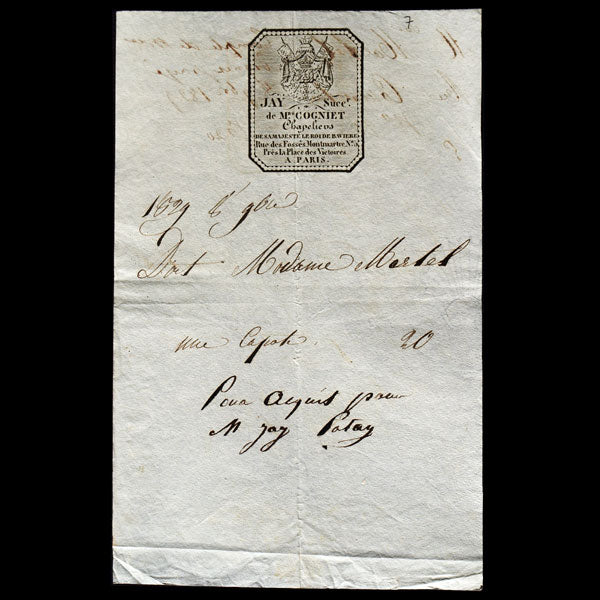 7
JAY Succr.
de Mr. GOGNIET
Chapeliers
DE SA MAJESTÉ LE ROI DE BAVIERE
Rue des Fossés Montmartre, No.
Près la Place des Victoires
A PARIS.
1829 9bre
Doit Madame Martel
une Capote 20
Pour acquis pour
M Jay Patay